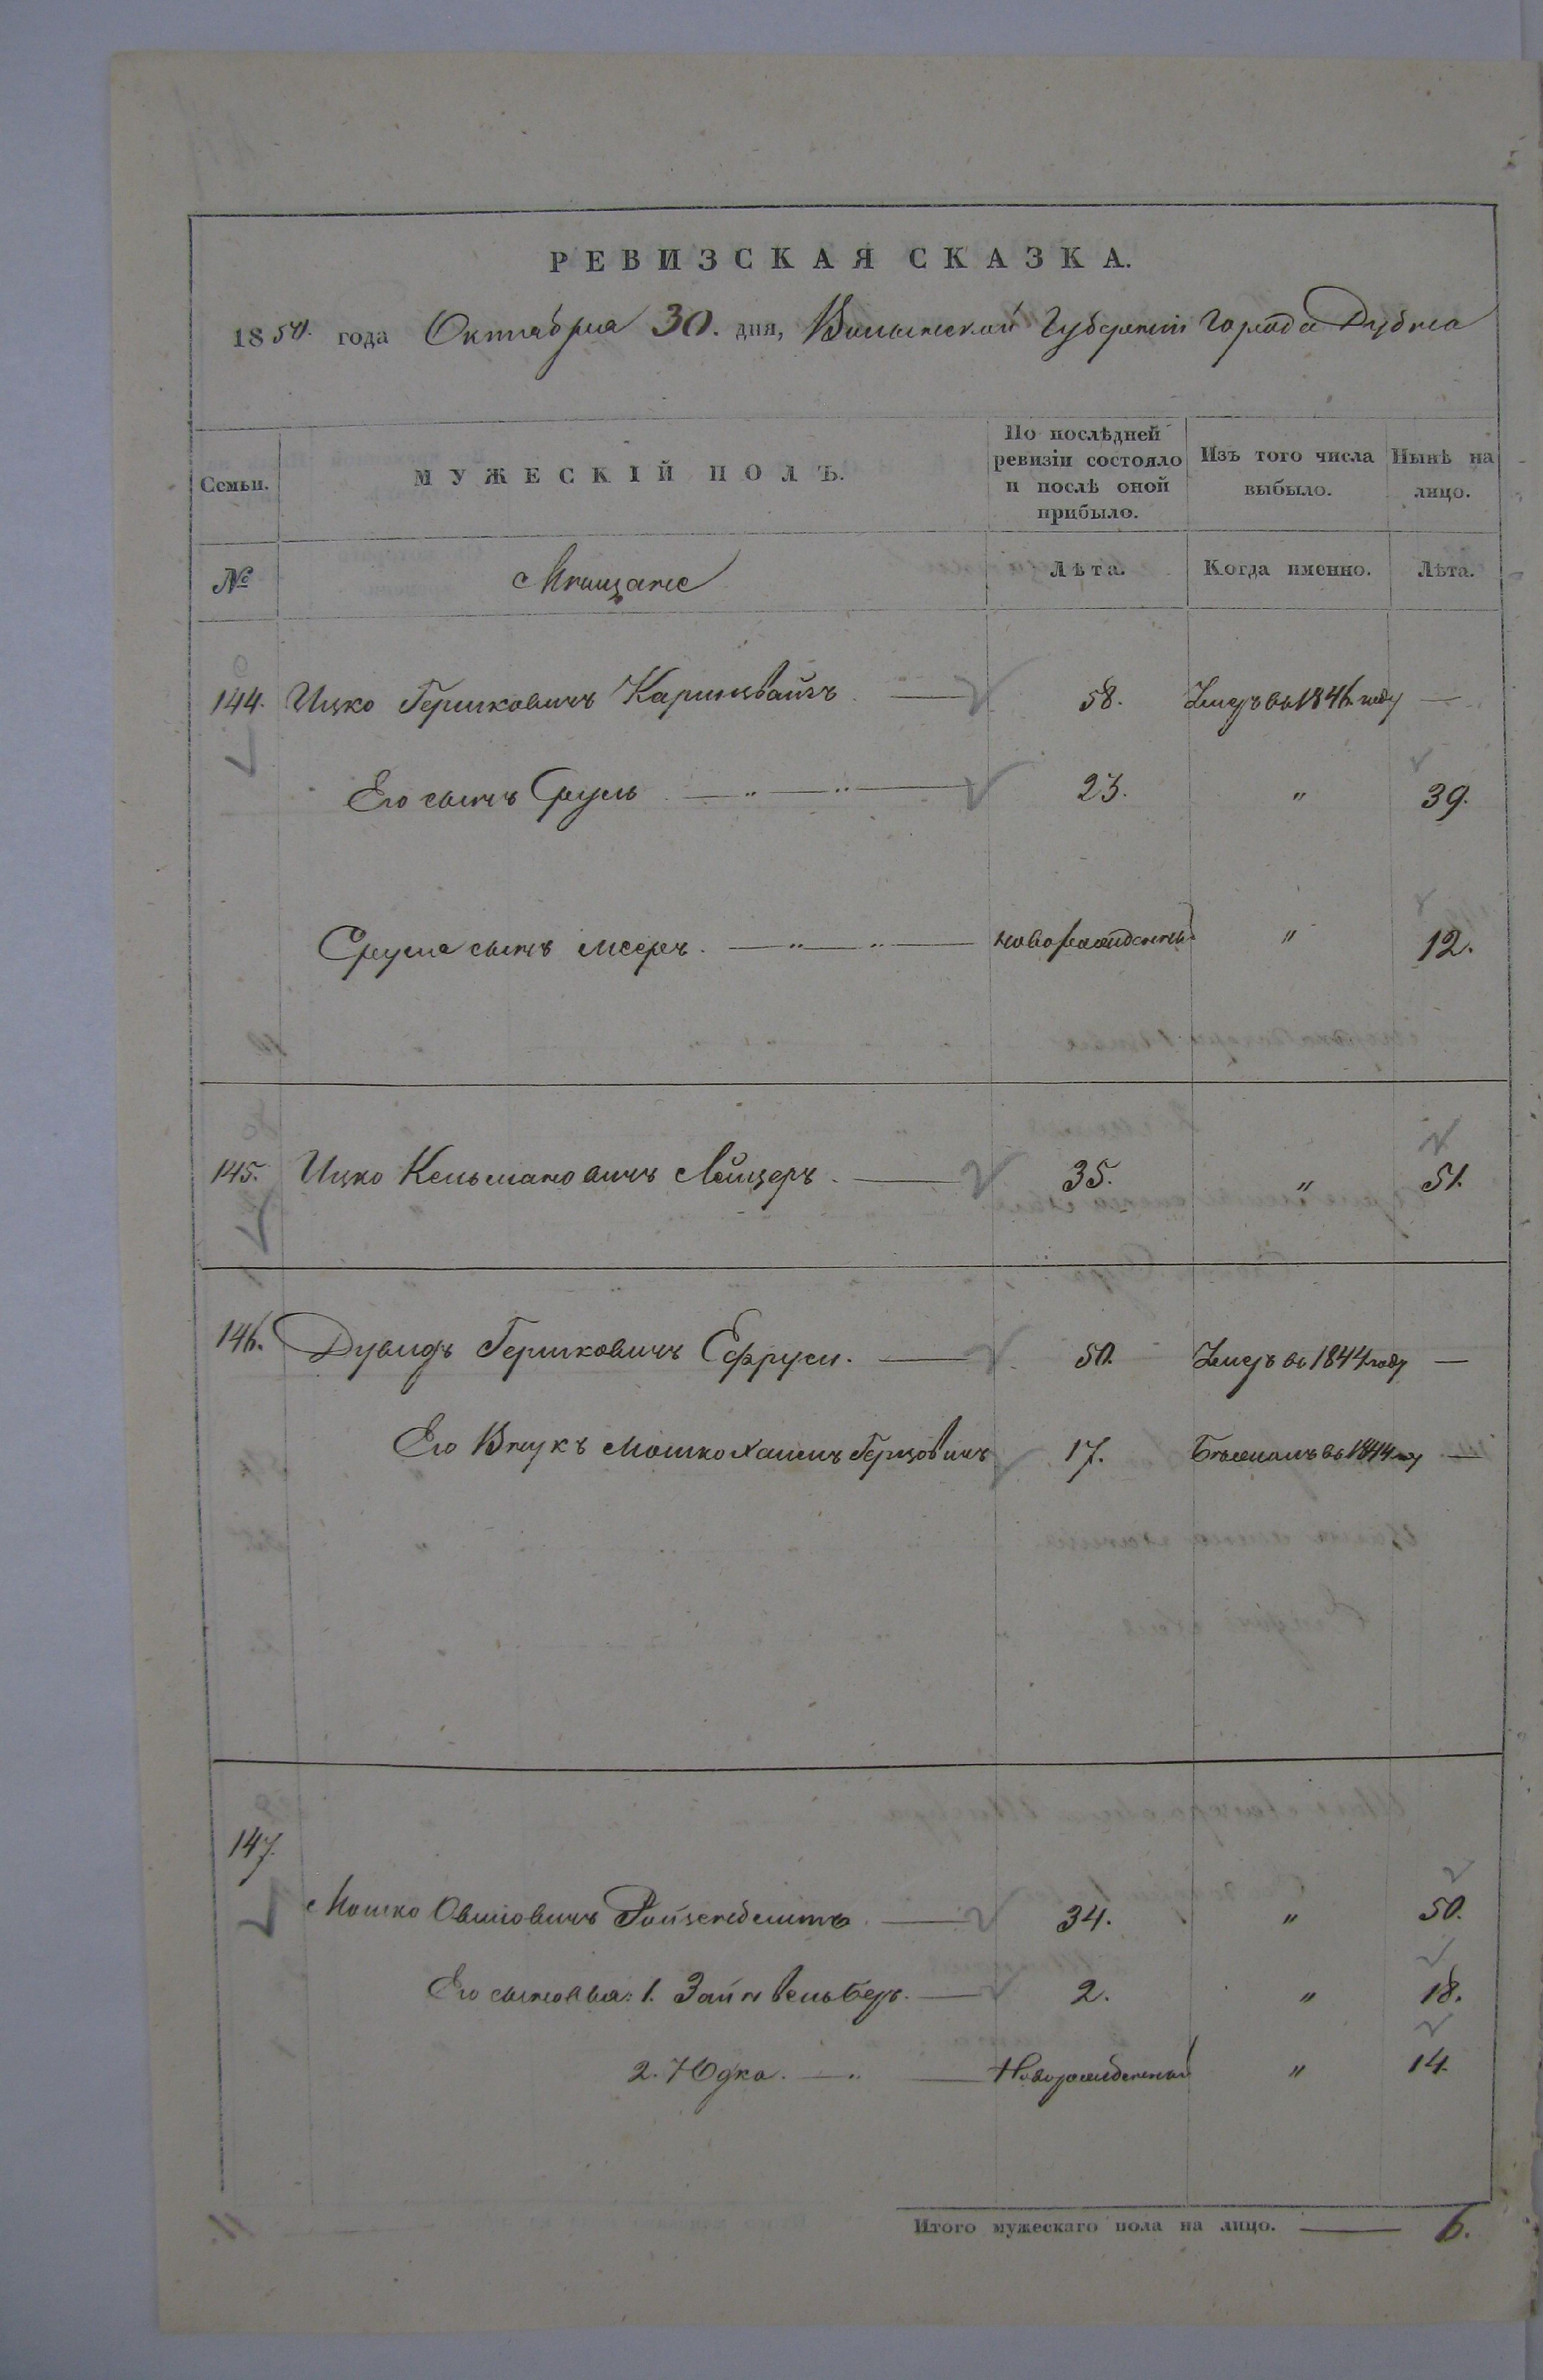 РЕВИЗСКАЯ СКАЗКА.
1850. года Октября 30. дня, Волынской Губернiи Города Дубна
Семьи.
МУЖЕСКІЙ ПОЛЪ.
По послѣдней ревизіи состояло и послѣ оной прибыло.
Изъ того числа выбыло.
Нынѣ на лицо.
№
Мѣщане
Лѣта.
Когда именно.
Лѣта.
144. Ицко Гершковичъ 58. Умеръ въ 1846. году —
Его сынъ Сруль 23. " 39.
Сруля сынъ Мееръ. новорожденный " 12.
145. Ицко Кельмановичъ 35. " 51.
146. Дувидъ Гершковичъ Ефруси. 50. Умеръ въ 1844 году —
Его Внукъ Мошко Хаимъ Герцовичъ 17. Бѣжалъ въ 1844 году —
147.
Мошко 34. " 50.
Его сыновья: 1. Зайнвель Беръ. 2. " 18.
2. Юдка. Новорожденный " 14.
Итого мужескаго пола на лицо. — 6.